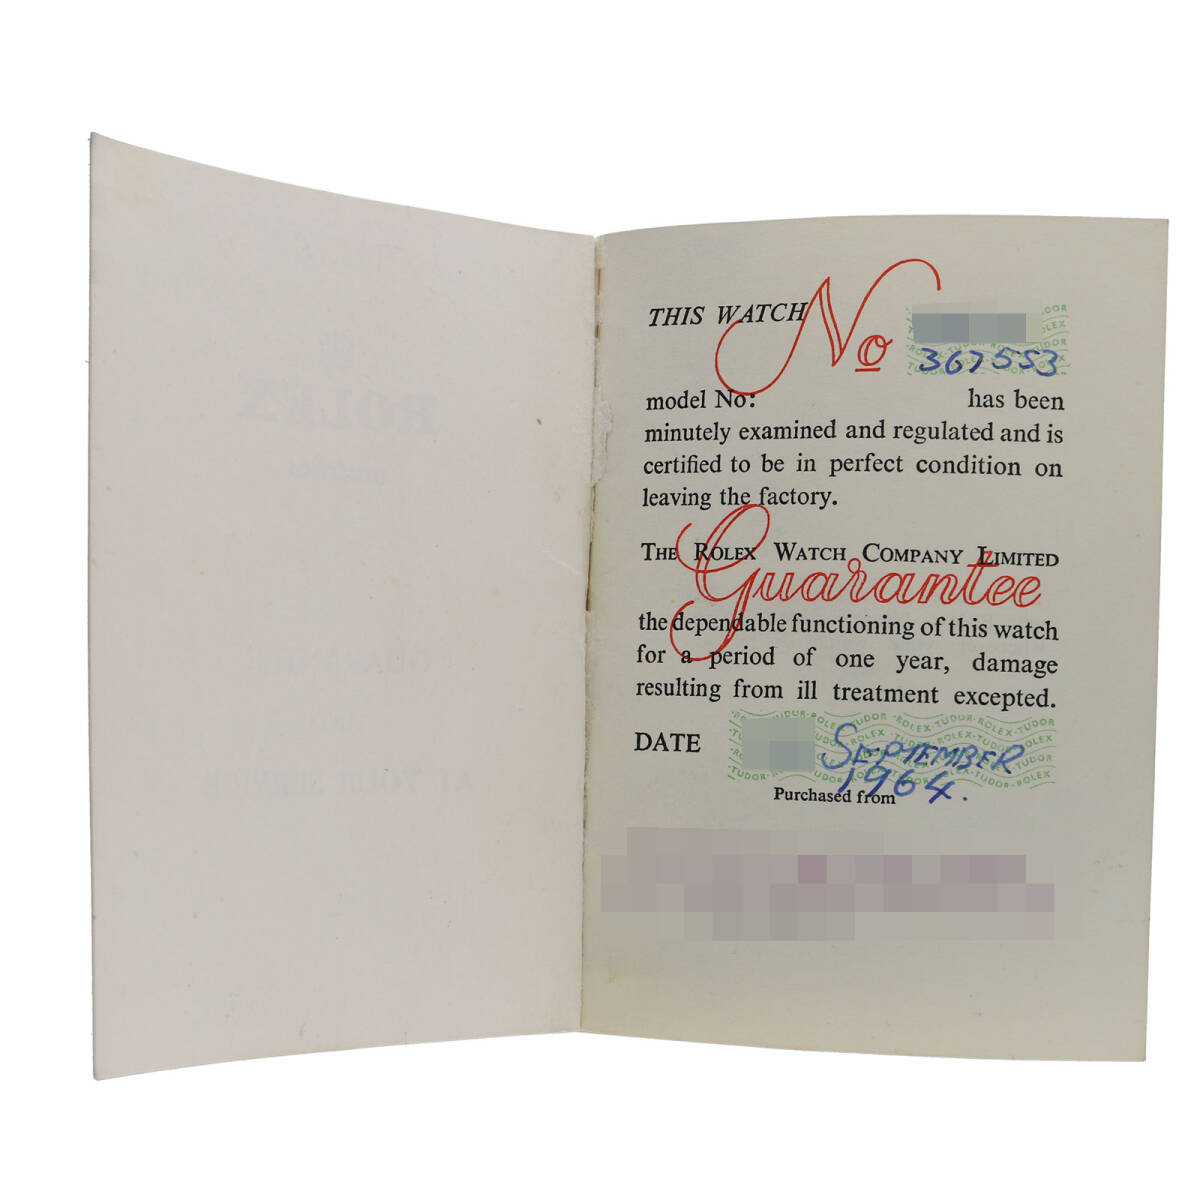 THIS WATCH No
367553
model No: has been
minutely examined and regulated and is
certified to be in perfect condition on
leaving the factory.
THE ROLEX WATCH COMPANY LIMITED
Guarantee
the dependable functioning of this watch
for a period of one year, damage
resulting from ill treatment excepted.
DATE SEPTEMBER
1964.
Purchased from